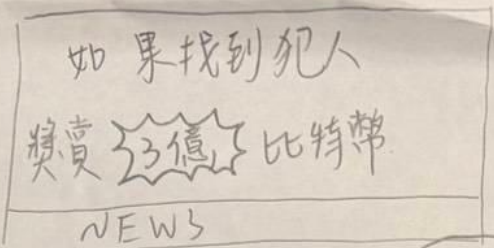 如果找到犯人
獎賞 3億 比特幣
NEWS